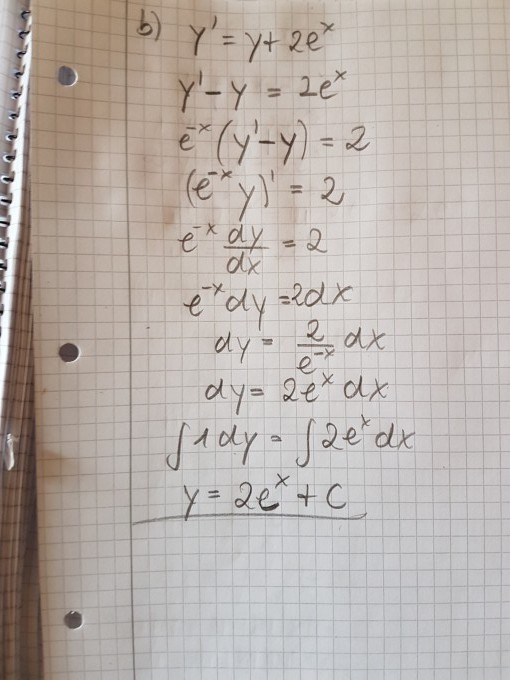 b) y' = y + 2eˣ
y' - y = 2eˣ
e⁻ˣ (y' - y) = 2
(e⁻ˣ y)' = 2
e⁻ˣ dy/dx = 2
e⁻ˣ dy = 2dx
dy = 2/e⁻ˣ dx
dy = 2eˣ dx
∫1dy = ∫2eˣdx
y = 2eˣ + C